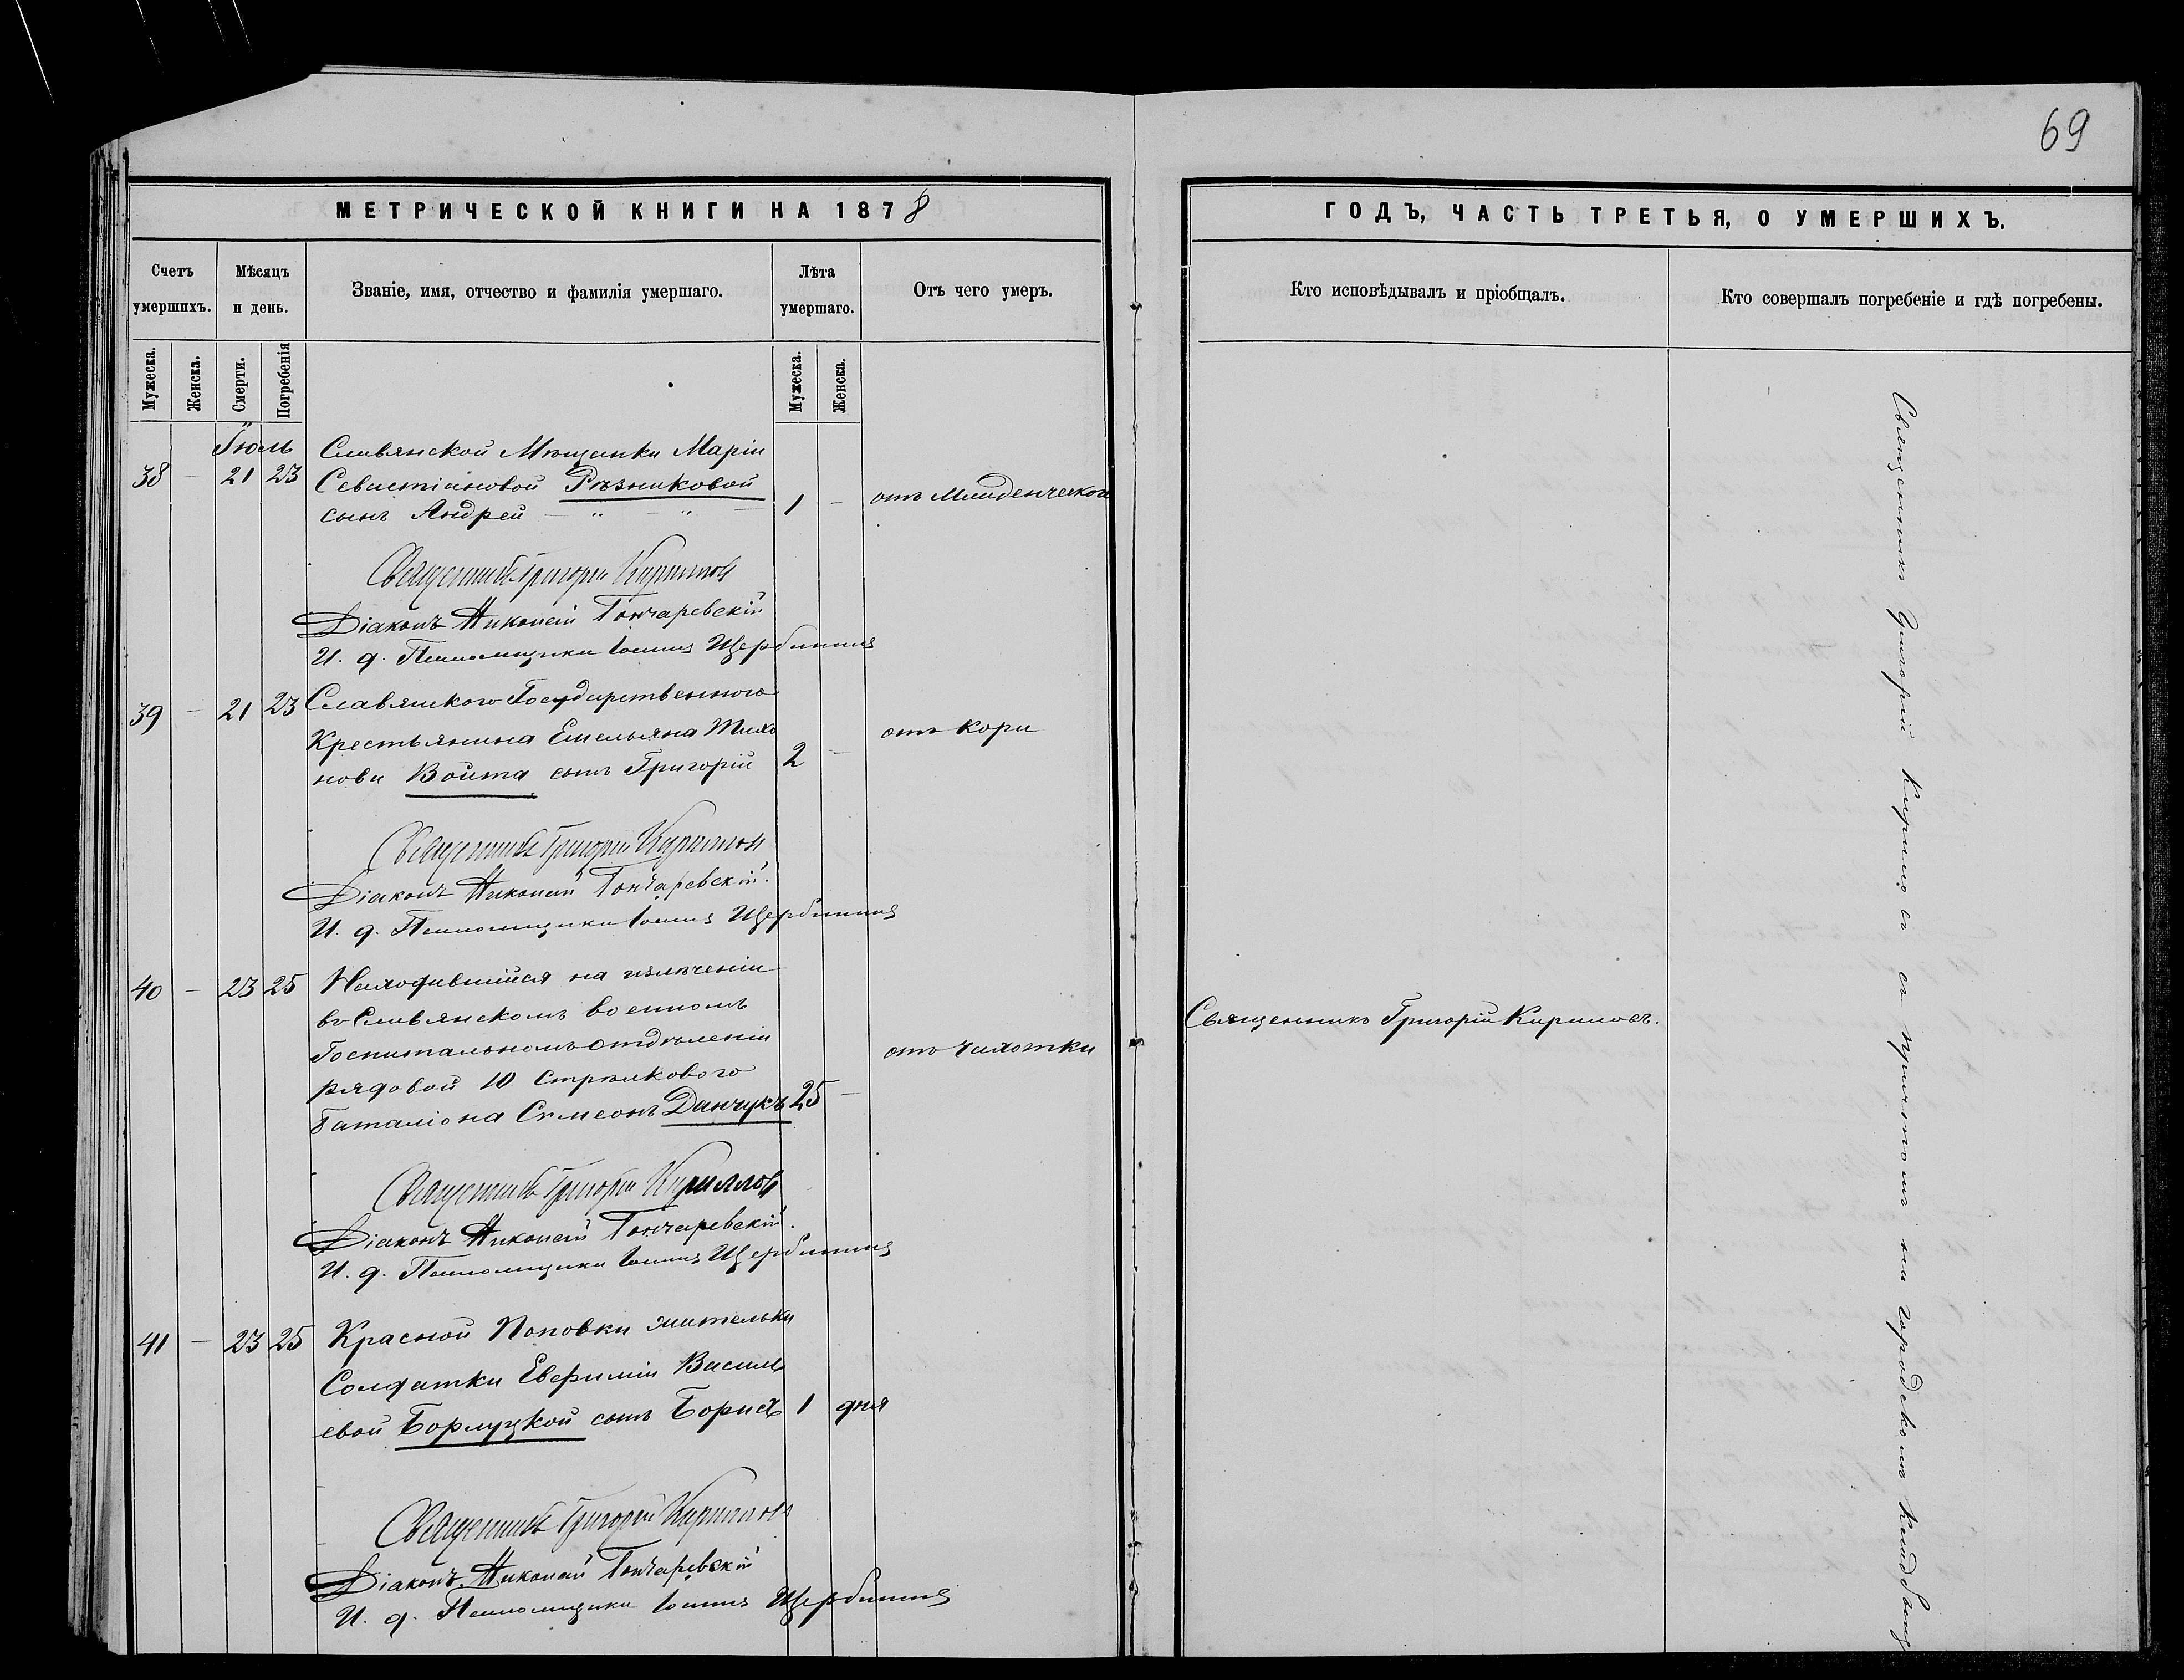 69
МЕТРИЧЕСКОЙ КНИГИ НА 1878
ГОДЪ, ЧАСТЬ ТРЕТЬЯ, О УМЕРШИХЪ.
Счетъ умершихъ.
Мѣсяцъ и день.
Званіе, имя, отчество и фамилія умершаго.
Лѣта умершаго.
Отъ чего умеръ.
Кто исповѣдывалъ и пріобщалъ.
Кто совершалъ погребеніе и гдѣ погребены.
Мужеска.
Женска.
Смерти.
Погребенія
Мужеска.
Женска.
Іюль
Славянской Мѣщанки Маріи
38 - 21 23 Севастіановой Рѣзниковой
сынъ Андрей - " - " - 1 - отъ Младенческой
Священникъ Григорій Кириловъ
Діаконъ Николай Гончаревскій
И. д. Псаломщика Іоаннъ Щербининъ
39 - 21 23 Славянского Государственного
Крестьянина Емельяна Тихо
нова Войта сынъ Григорій 2 - отъ кори
Священникъ Григорій Кириловъ
Діаконъ Николай Гончаревскій.
И. д. Псаломщика Іоаннъ Щербининъ
40 - 23 25 Находившійся на излѣченіи
въ Славянскомъ военномъ
Госпитальномъ отдѣленіи
рядовой 10 Стрѣлкового
баталіона Семеонъ Данчукъ 25 - отъ чахотки
Священникъ Григорій Кириловъ.
Священникъ Григорій Кириллов
Діаконъ Николай Гончаревскій.
И. д. Псаломщика Іоаннъ Щербининъ
41 - 23 25 Красной Поповки жительки
Солдатки Евфиміи Василь
евой Борлуцкой сынъ Борисъ 1 дня
Священникъ Григорій Кириловъ
Діаконъ Николай Гончаревскій
И. д. Псаломщика Іоаннъ Щербининъ
Священникъ Григорій Кириловъ съ причтомъ на городскомъ кладбищ